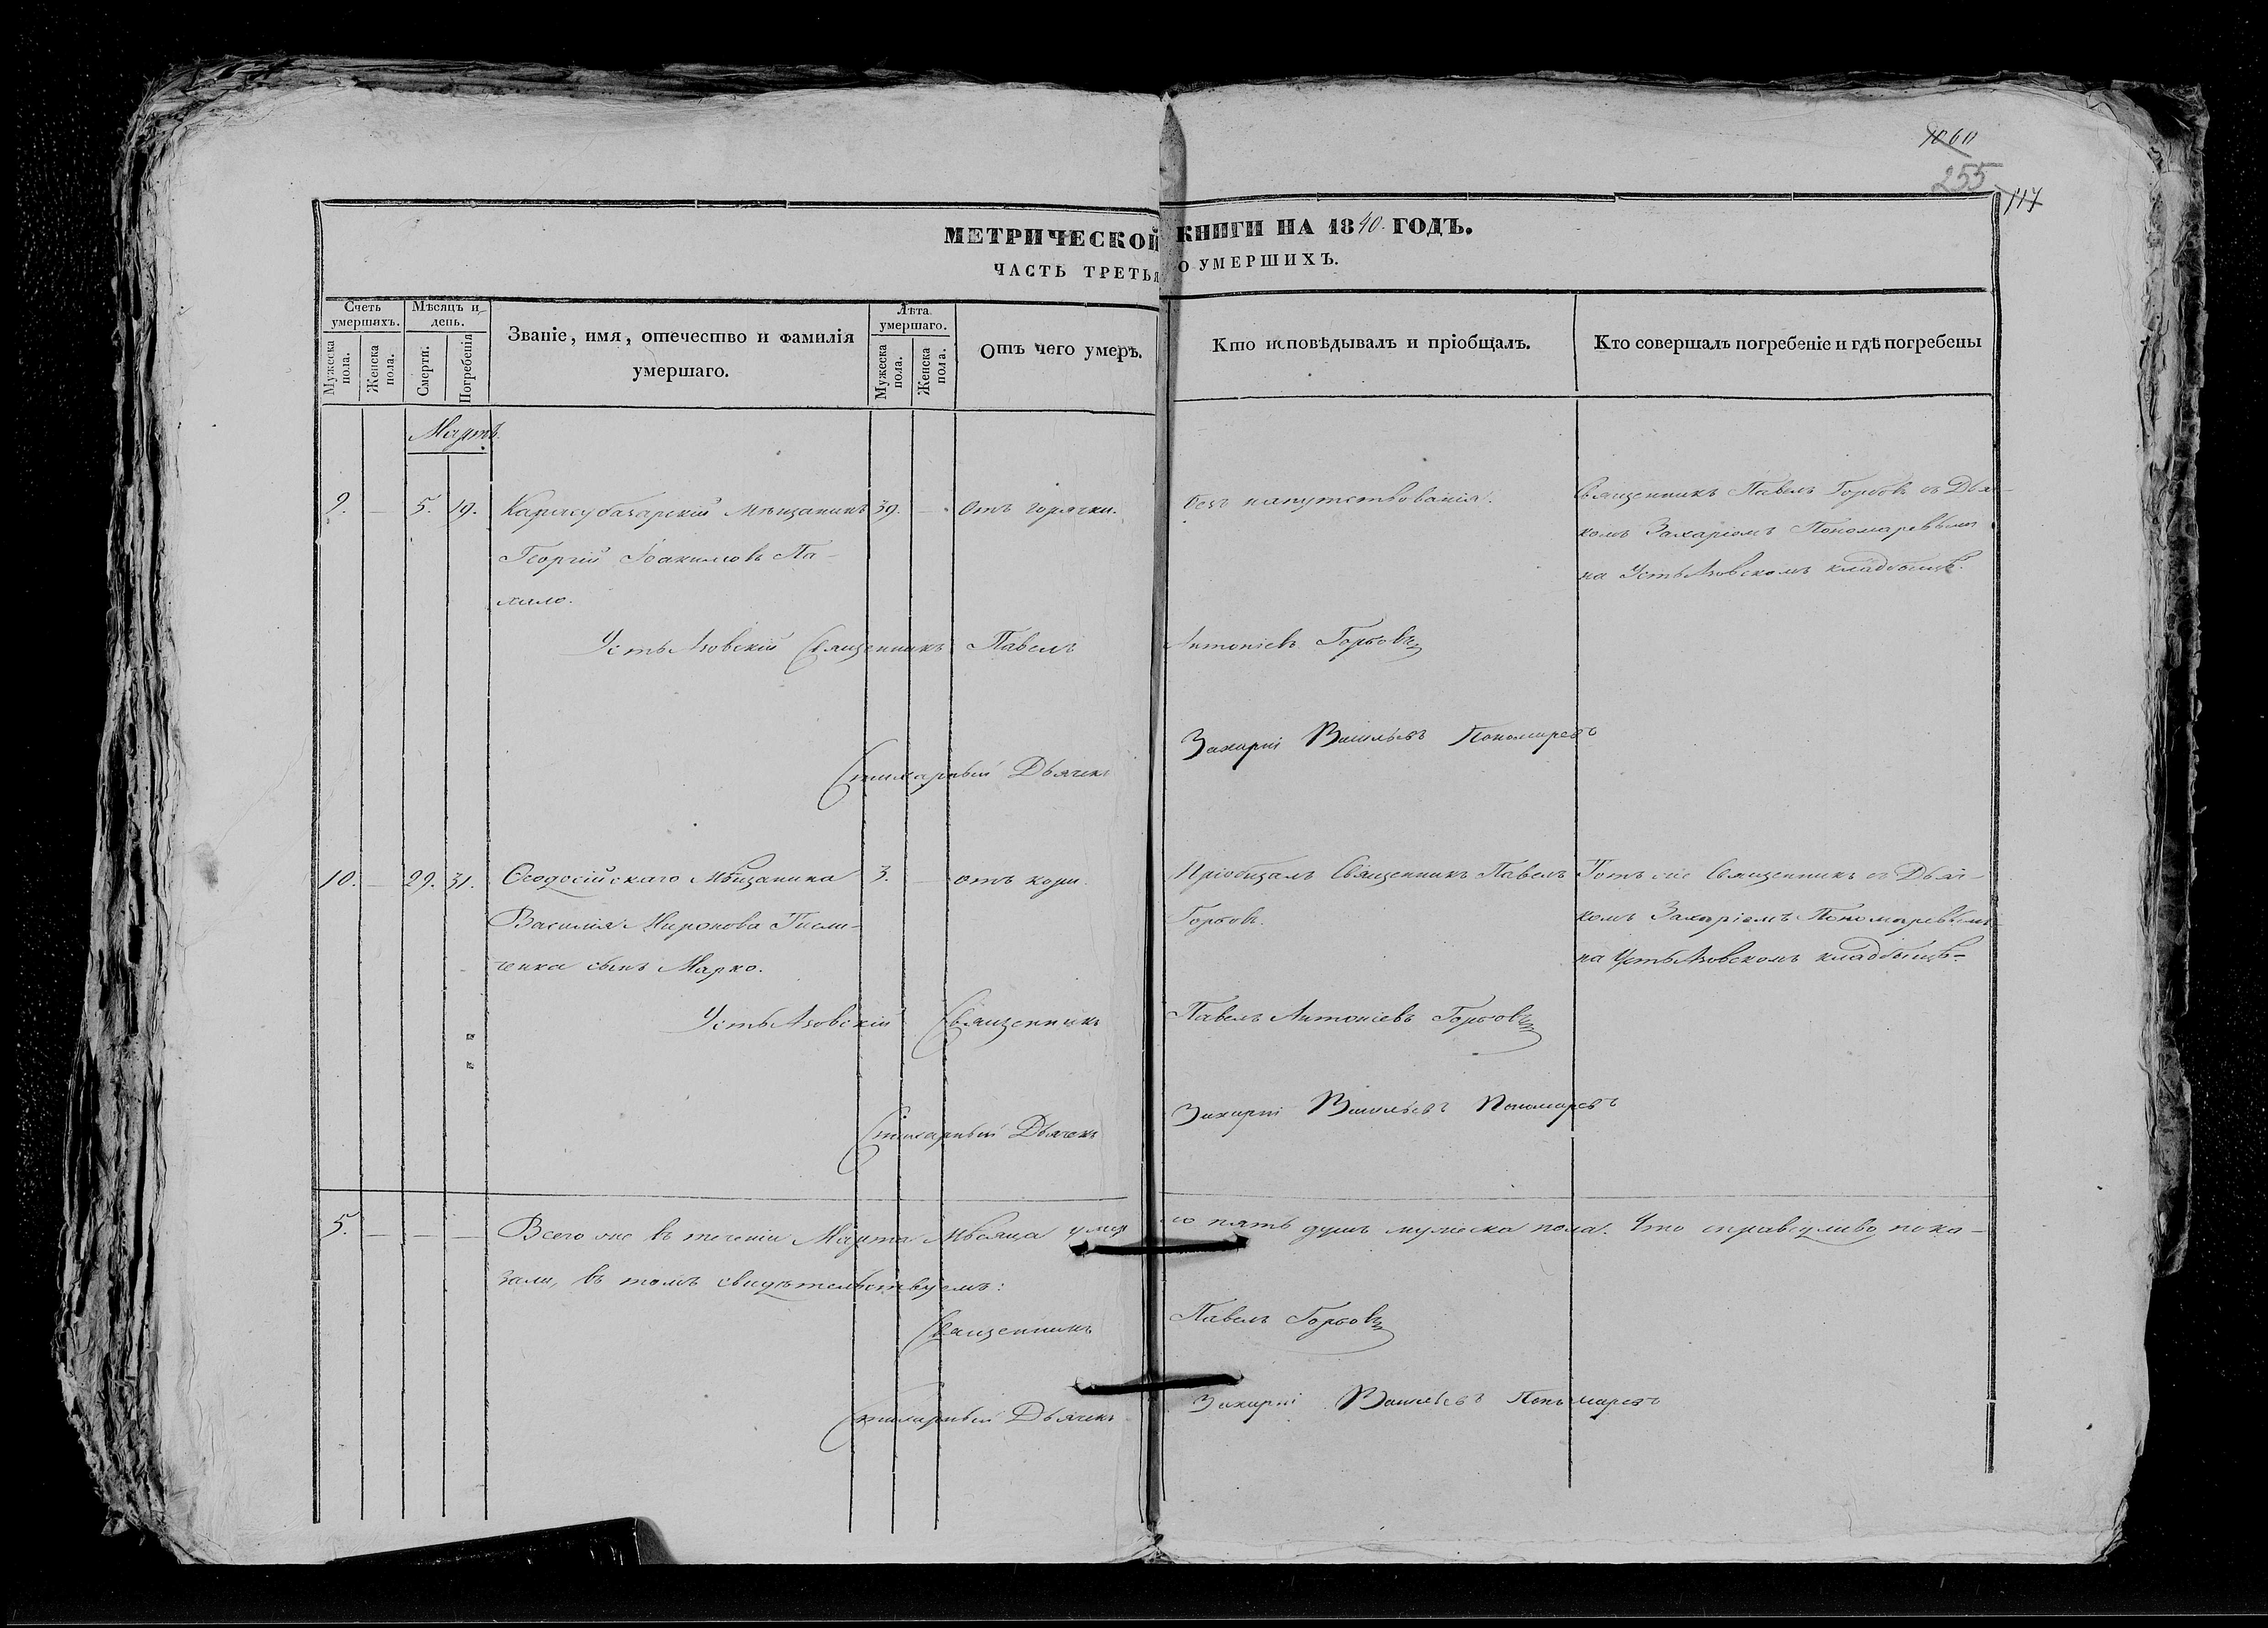 1060
255
117
МЕТРИЧЕСКОЙ КНИГИ НА 1840. ГОДЪ.
ЧАСТЬ ТРЕТЬЯ О УМЕРШИХЪ.
Счетъ умершихъ.
Мужеска пола.
Женска пола.
Мѣсяцъ и день.
Смерти.
Погребенія
Званіе, имя, отечество и фамилія умершаго.
Лѣта умершаго.
Мужеска пола.
Женска пола.
Отъ чего умеръ.
Кто исповѣдывалъ и пріобщалъ.
Кто совершалъ погребеніе и гдѣ погребены
Мартъ.
9. — 5. 19. Карасубазарскій Мѣщанинъ 39. — Отъ горячки. безъ напутствованія. Священникъ Павелъ Горбовъ съ Дьяч-
Георгій Іоакимовъ Па- комъ Захаріемъ Пономаревымъ
хило. на Усть Азовскомъ кладбыщѣ.
Усть Азовскій Священникъ Павелъ Антоніевъ Горбовъ
Стихарный Дьячекъ Захарій Васильевъ Пономаревъ
10. — 29. 31. Ѳеодосійскаго Мѣщанина 3. — отъ кори. Пріобщалъ Священникъ Павелъ Тотъ же Священникъ съ Дьяч-
Василія Миронова Горбовъ. комъ Захаріемъ Пономаревымъ
сынъ Марко. на Усть Азовскомъ кладбыщѣ.
Усть Азовскій Священникъ Павелъ Антоніевъ Горбовъ
Стихарный Дьячекъ Захарій Васильевъ Пономаревъ
5. — — — Всего же въ теченіи Марта Мѣсяца умерло пять душъ мужеска пола. Что справедливо пока-
зали, въ томъ свидѣтельствуемъ:
Священникъ Павелъ Горбовъ
Стихарный Дьячекъ Захарій Васильевъ Пономаревъ